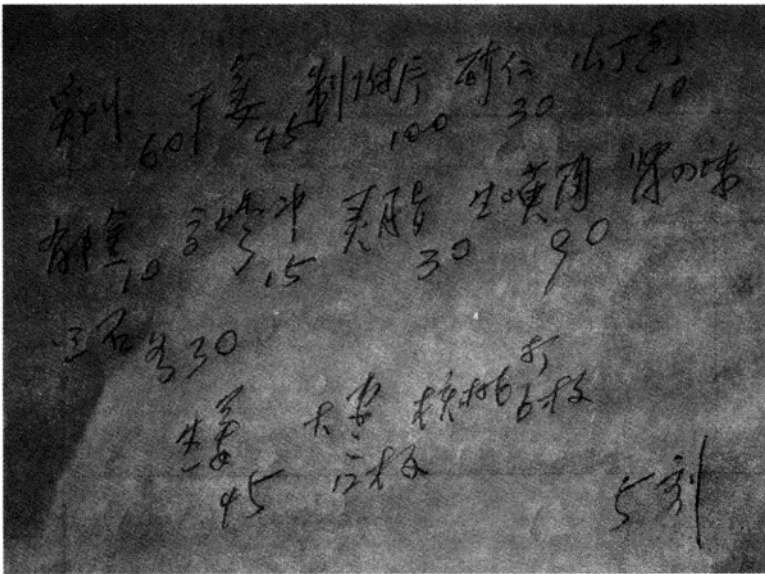 炙草 60 干姜 45 制附片 100 砂仁 30 公丁香 10
郁金 10 冲 15 灵脂 30 生 90 肾四味
三石各30
生姜 45 大枣 12枚 核桃打6枚
5剂